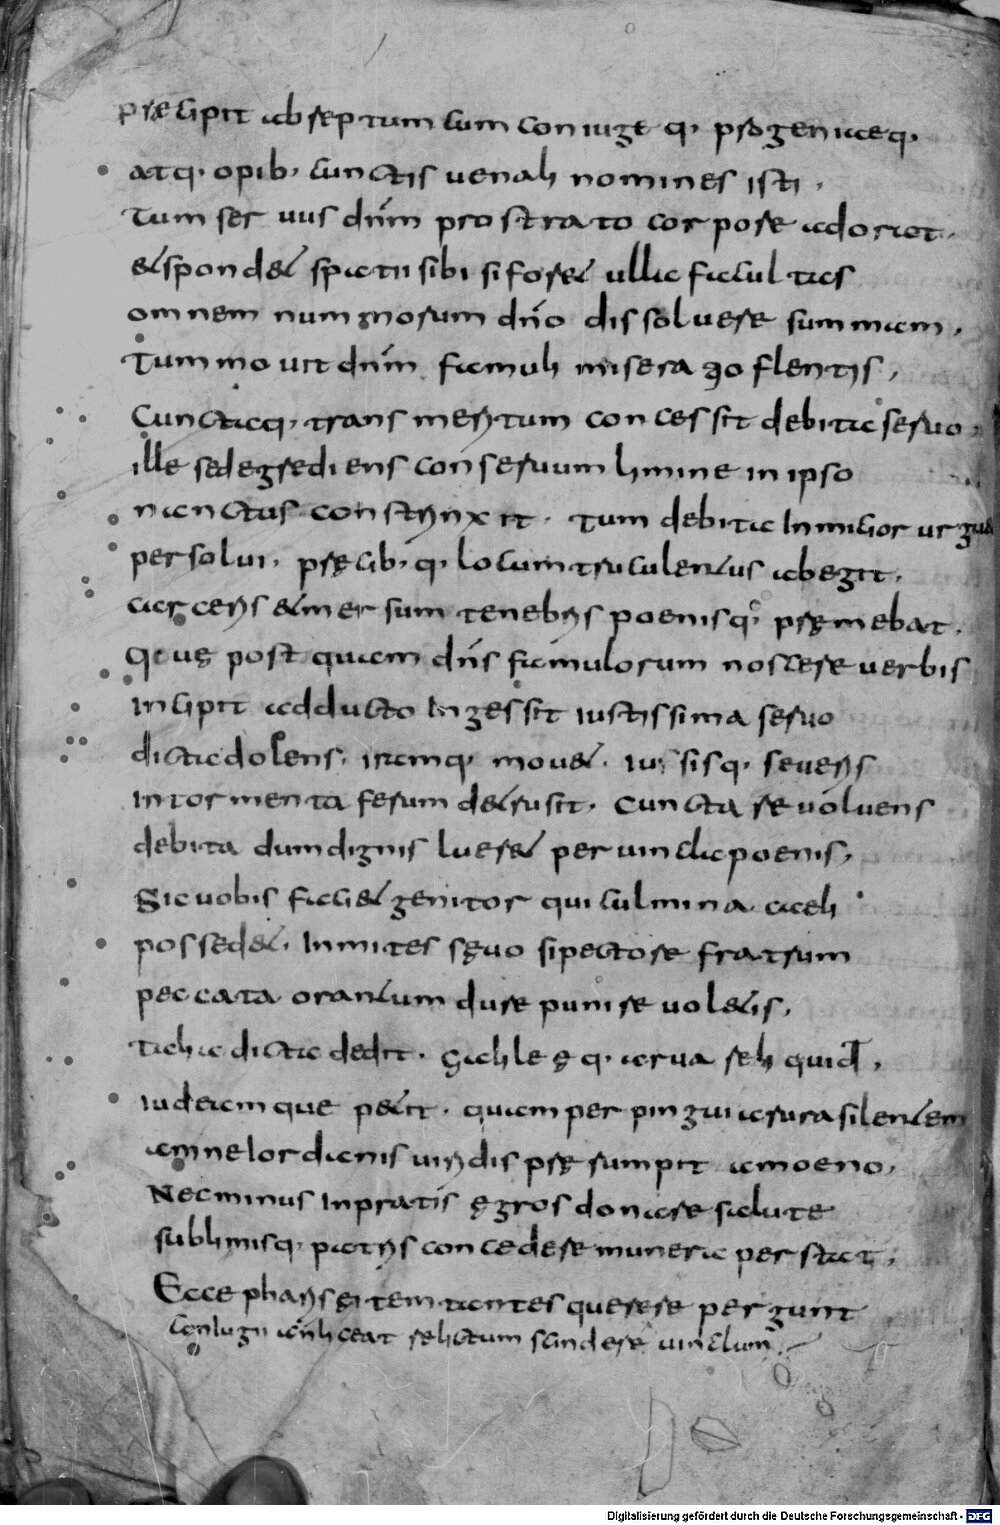 præcipit abseptum cum coniuge q· progeniaeq·
atq· opib· cunctis uenali nomine sisti,
Tum seruus dnm prostrato corpore adorat.
& spondet spatii sibi si foret ulla facultas
omnem nummorum dño dissoluere summam,
Tum mouit dnm famuli miseratio flentis,
Cunctaq· trans meritum concessit debita seruo,
ille sed egrediens conseruum limine in ipso
nanctus constrinxit. Tum debita Inmitior urgu&
persolui, pręcib·q· locum truculentus abegit,
carceris & mersum tenebris poenisq· pręmebat.
Quę postquam dñs famulorum noscere uerbis
Incipit adducto Ingessit iustissima seruo
dicta dolens, iramq· mouet. iussisq· seueris
In tormenta ferum detrusit. Cuncta reuoluens
debita dum dignis lueret peruincla poenis,
Sic uobis faciet genitor qui culmina caeli
possedet, Inmites sęuo si pectore fratrum
peccata orantum dure punire uoletis,
Talia dicta dedit. galileęq· arua reliquid,
iudeamque petit. quam per pinguia rura silentem
amne Iordanis uiridis pręrumpit amoeno,
Nec minus In pratis ęgros donare salute
sublimisq· patris concedere munera perstat,
Ecce pharisęi temtantes querere pergunt
Coniugii an liceat relictum scindere uinclum
Digitalisierung gefördert durch die Deutsche Forschungsgemeinschaft - DFG